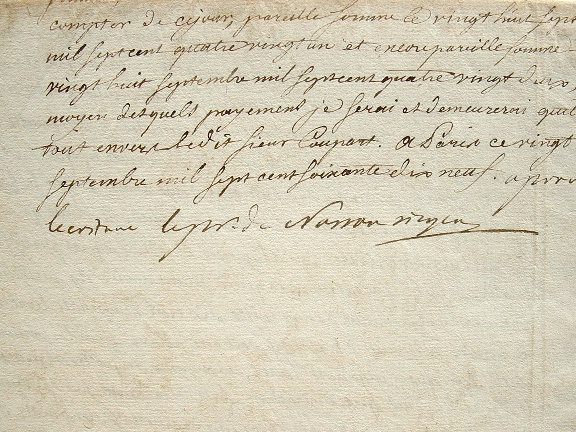 compter de cejour, pareille somme le vingt huit sept
mil sept cent quatre vingt un et encore pareille somme
vingt huit septembre mil sept cent quatre vingt deux,
moyen desquels payemens je serai et demeurerai quit
tout envers ledit Sieur Coupart. a Paris ce vingt
septembre mil sept cent soixante dix neuf. approu
lecriture le pr. de Nassau